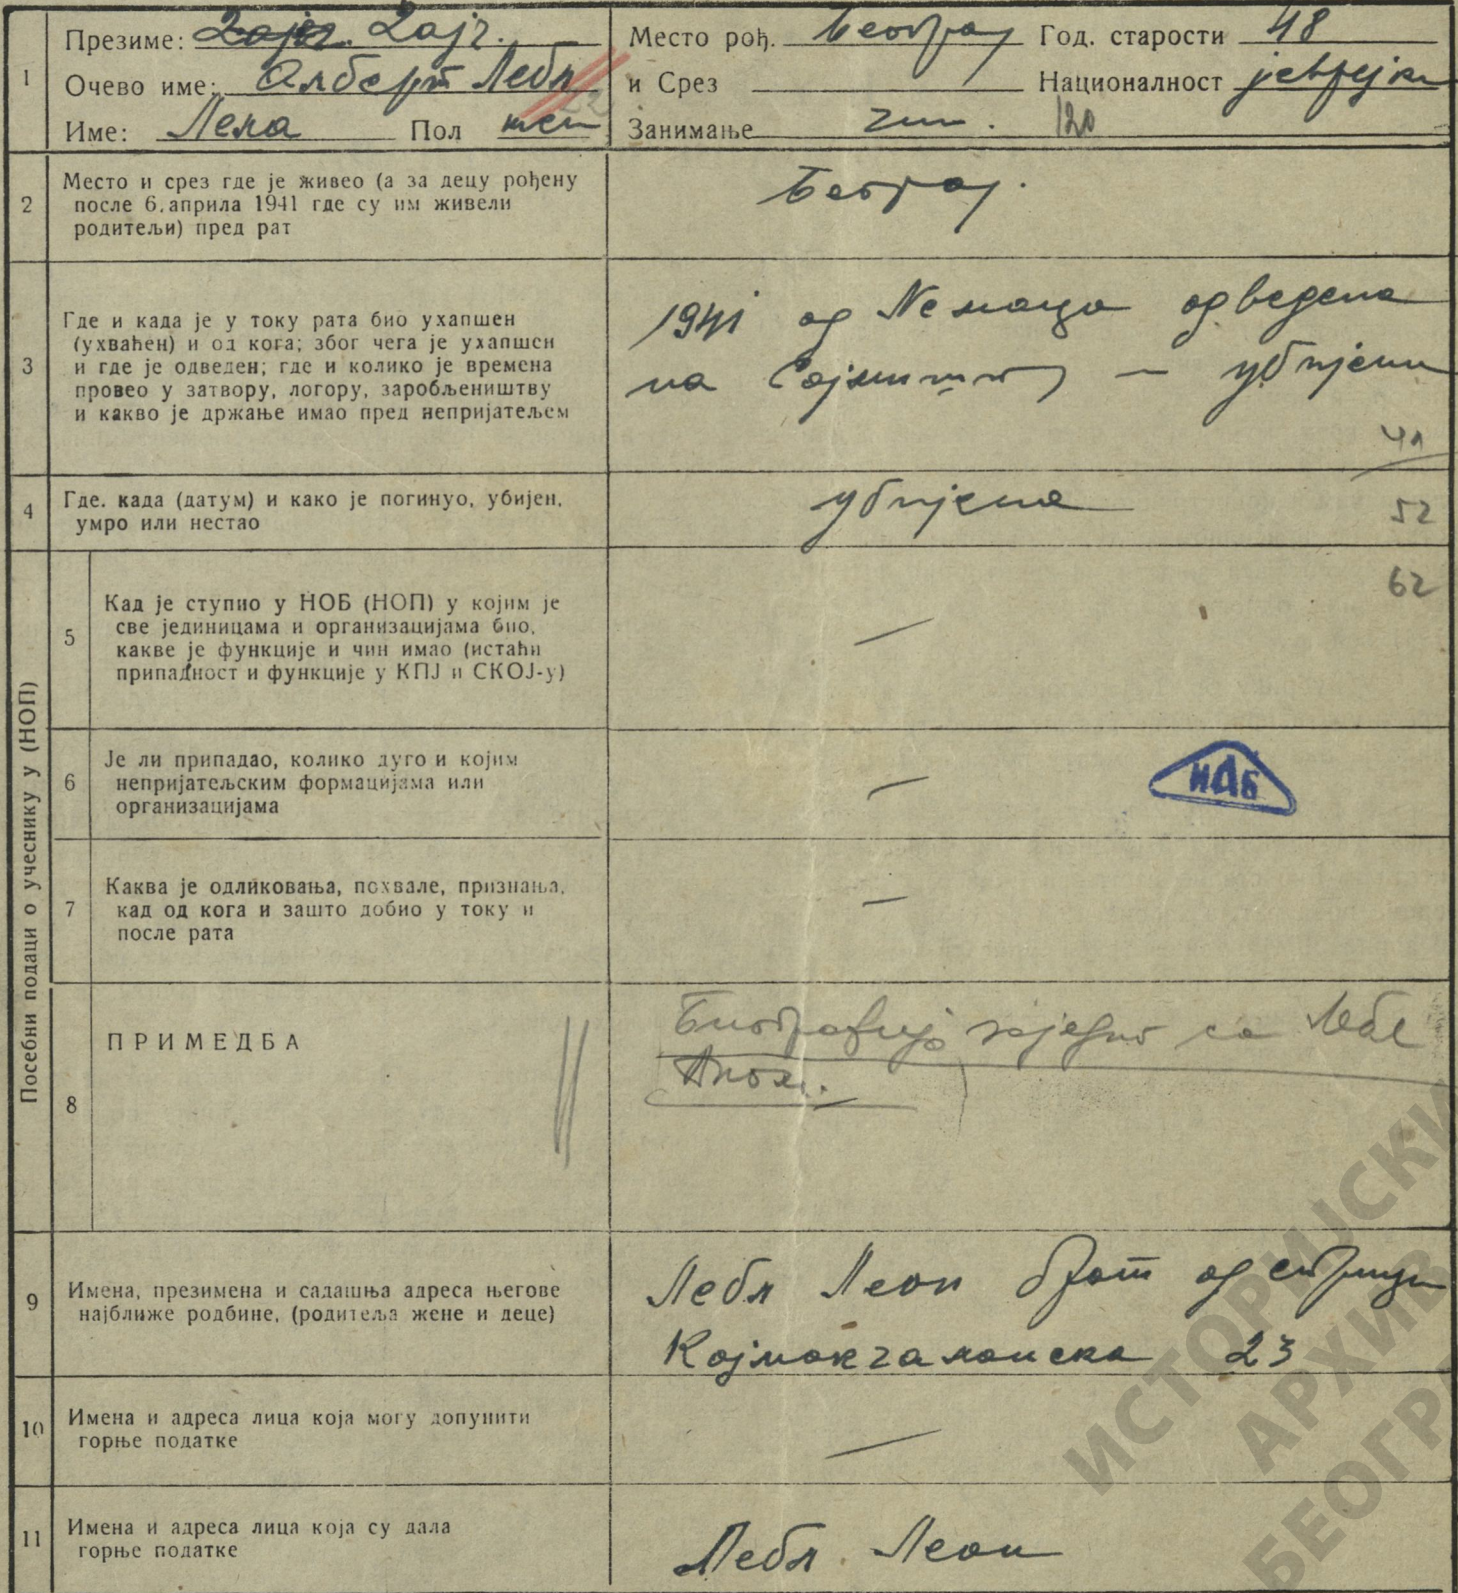 1
Презиме: Дајч. Дајч.
Очево име: Алберт Лебл
Име: Лена Пол жен
Место рођ. Београд Год. старости 48
и Срез Националност јеврејка
Занимање чин. 120
2
Место и срез где је живео (а за децу рођену
после 6. априла 1941 где су им живели
родитељи) пред рат
Београд.
3
Где и када је у току рата био ухапшен
(ухваћен) и од кога; због чега је ухапшен
и где је одведен; где и колико је времена
провео у затвору, логору, заробљеништву
и какво је држање имао пред непријатељем
1941 од Немаца одведена
на Сајмиште – убијена
41
4
Где, када (датум) и како је погинуо, убијен,
умро или нестао
убијена
52
Посебни подаци о учеснику у (НОП)
5
Кад је ступио у НОБ (НОП) у којим је
све јединицама и организацијама био,
какве је функције и чин имао (истаћи
припадност и функције у КПЈ и СКОЈ-у)
—
62
6
Је ли припадао, колико дуго и којим
непријатељским формацијама или
организацијама
—
ИАБ
7
Каква је одликовања, похвале, признања,
кад од кога и зашто добио у току и
после рата
—
8
ПРИМЕДБА
Биографија заједно са Лебл
9
Имена, презимена и садашња адреса његове
најближе родбине, (родитеља жене и деце)
Лебл Леон брат од стрица
Којмакчаланска 23
10
Имена и адреса лица која могу допунити
горње податке
—
11
Имена и адреса лица која су дала
горње податке
Лебл Леон
ИСТОРИЈСКИ
АРХИВ
БЕОГР